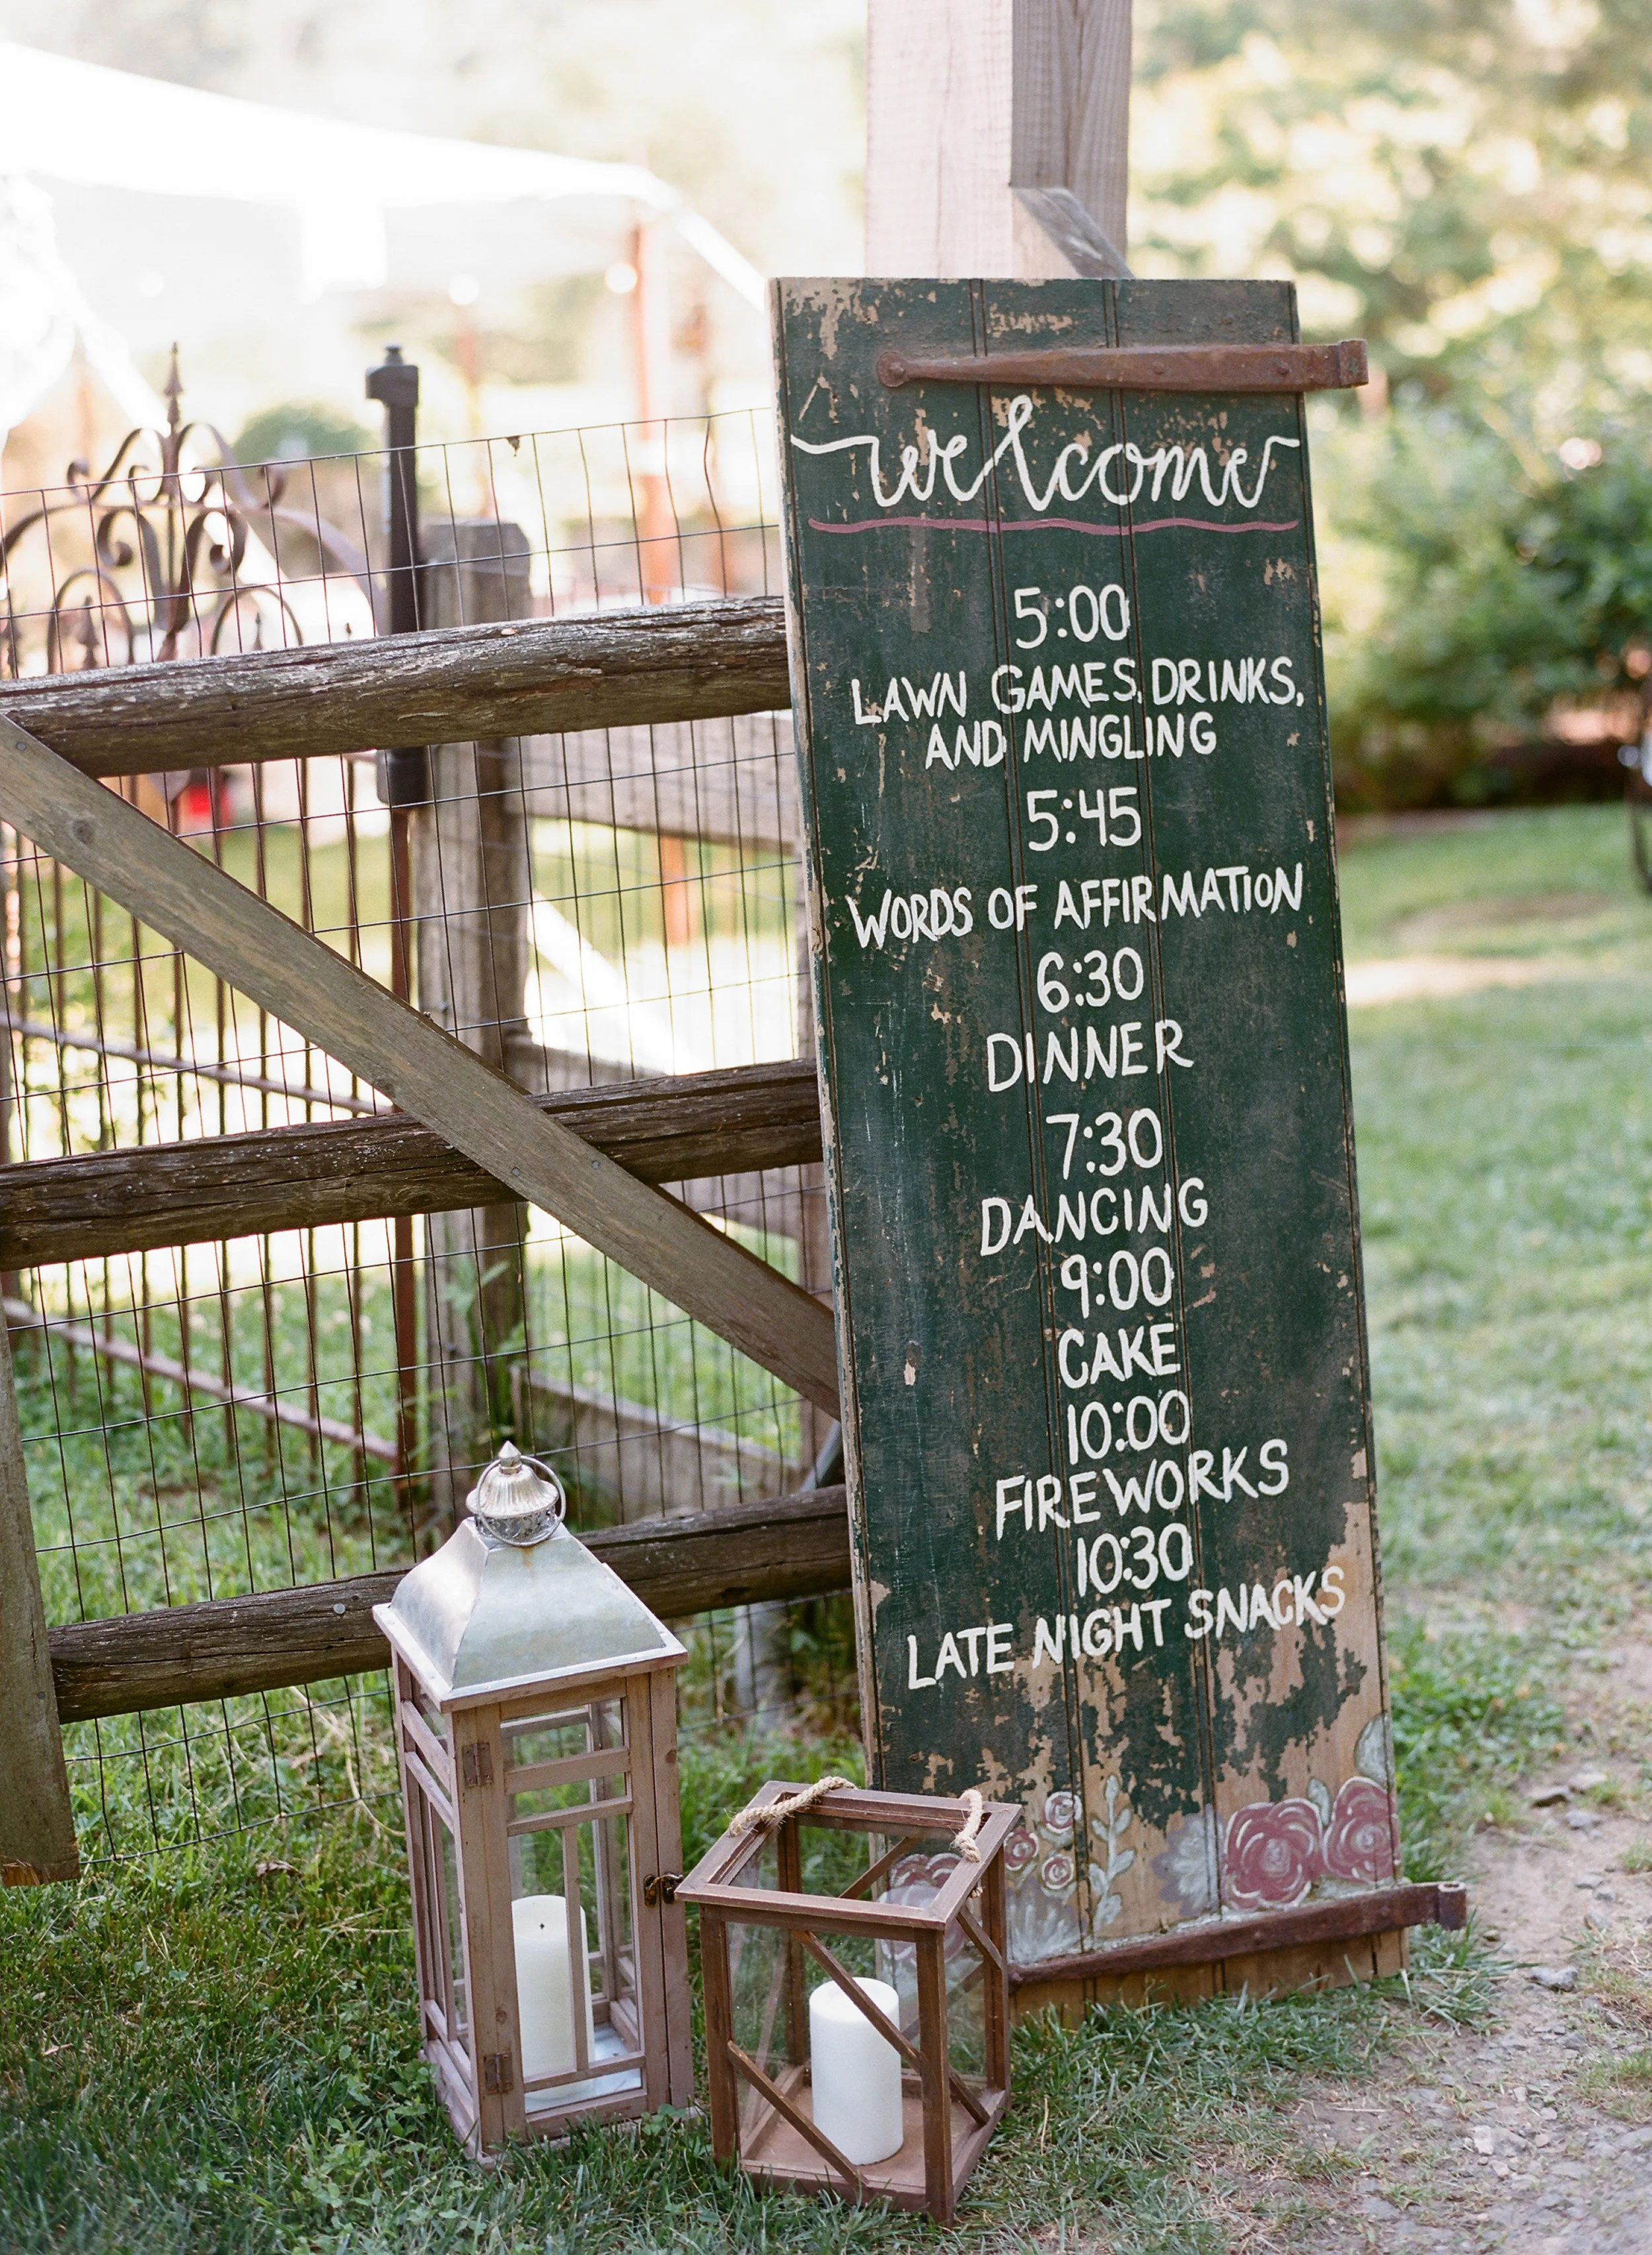 welcome
5:00
LAWN GAMES, DRINKS,
AND MINGLING
5:45
WORDS OF AFFIRMATION
6:30
DINNER
7:30
DANCING
9:00
CAKE
10:00
FIREWORKS
10:30
LATE NIGHT SNACKS